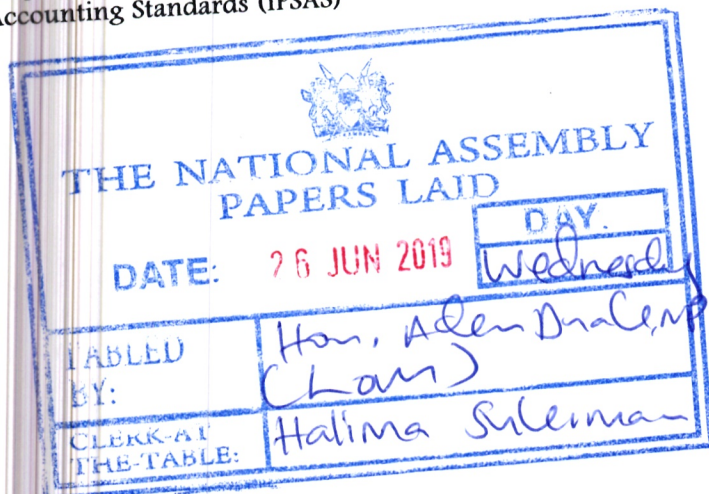 Accounting Standards (IPSAS)
THE NATIONAL ASSEMBLY
PAPERS LAID
DATE: 26 JUN 2019
DAY.
Wednesday
TABLED BY:
Hon. Aden Duale, MP
CLERK-AT THE-TABLE:
Halima Suleiman